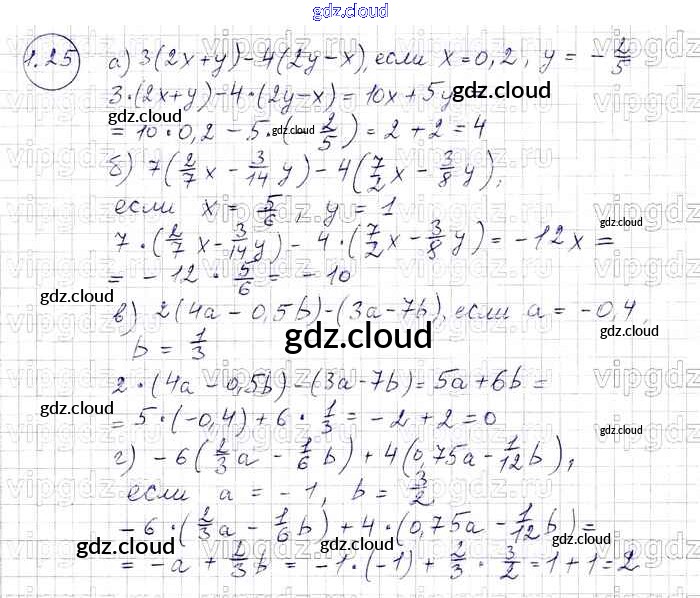 gdz.cloud
1.25 а) 3(2x+y)-4(2y-x), если x=0,2, y = -2/5
3·(2x+y)-4·(2y-x)= 10x+5y gdz.cloud
gdz.cloud
= 10·0,2 - 5·(-2/5) = 2+2=4
б) 7(2/7x - 3/14y) - 4(7/2x - 3/8y),
если x = 5/6, y = 1
gdz.cloud
7·(2/7x - 3/14y) - 4·(7/2x - 3/8y) = -12x =
= -12 · 5/6 = -10
gdz.cloud
в) 2(4a-0,5b)-(3a-7b), если a = -0,4,
gdz.cloud
b = 1/3
gdz.cloud
2·(4a-0,5b)-(3a-7b)=5a+6b=
gdz.cloud
= 5·(-0,4)+6·1/3 = -2+2=0
gdz.cloud
г) -6(2/3a - 1/6b) + 4(0,75a - 1/12b),
если a = -1, b = 3/2
gdz.cloud
-6·(2/3a - 1/6b) + 4·(0,75a - 1/12b) =
gdz.cloud
gdz.cloud
= -a + 2/3b = -1·(-1) + 2/3 · 3/2 = 1+1=2